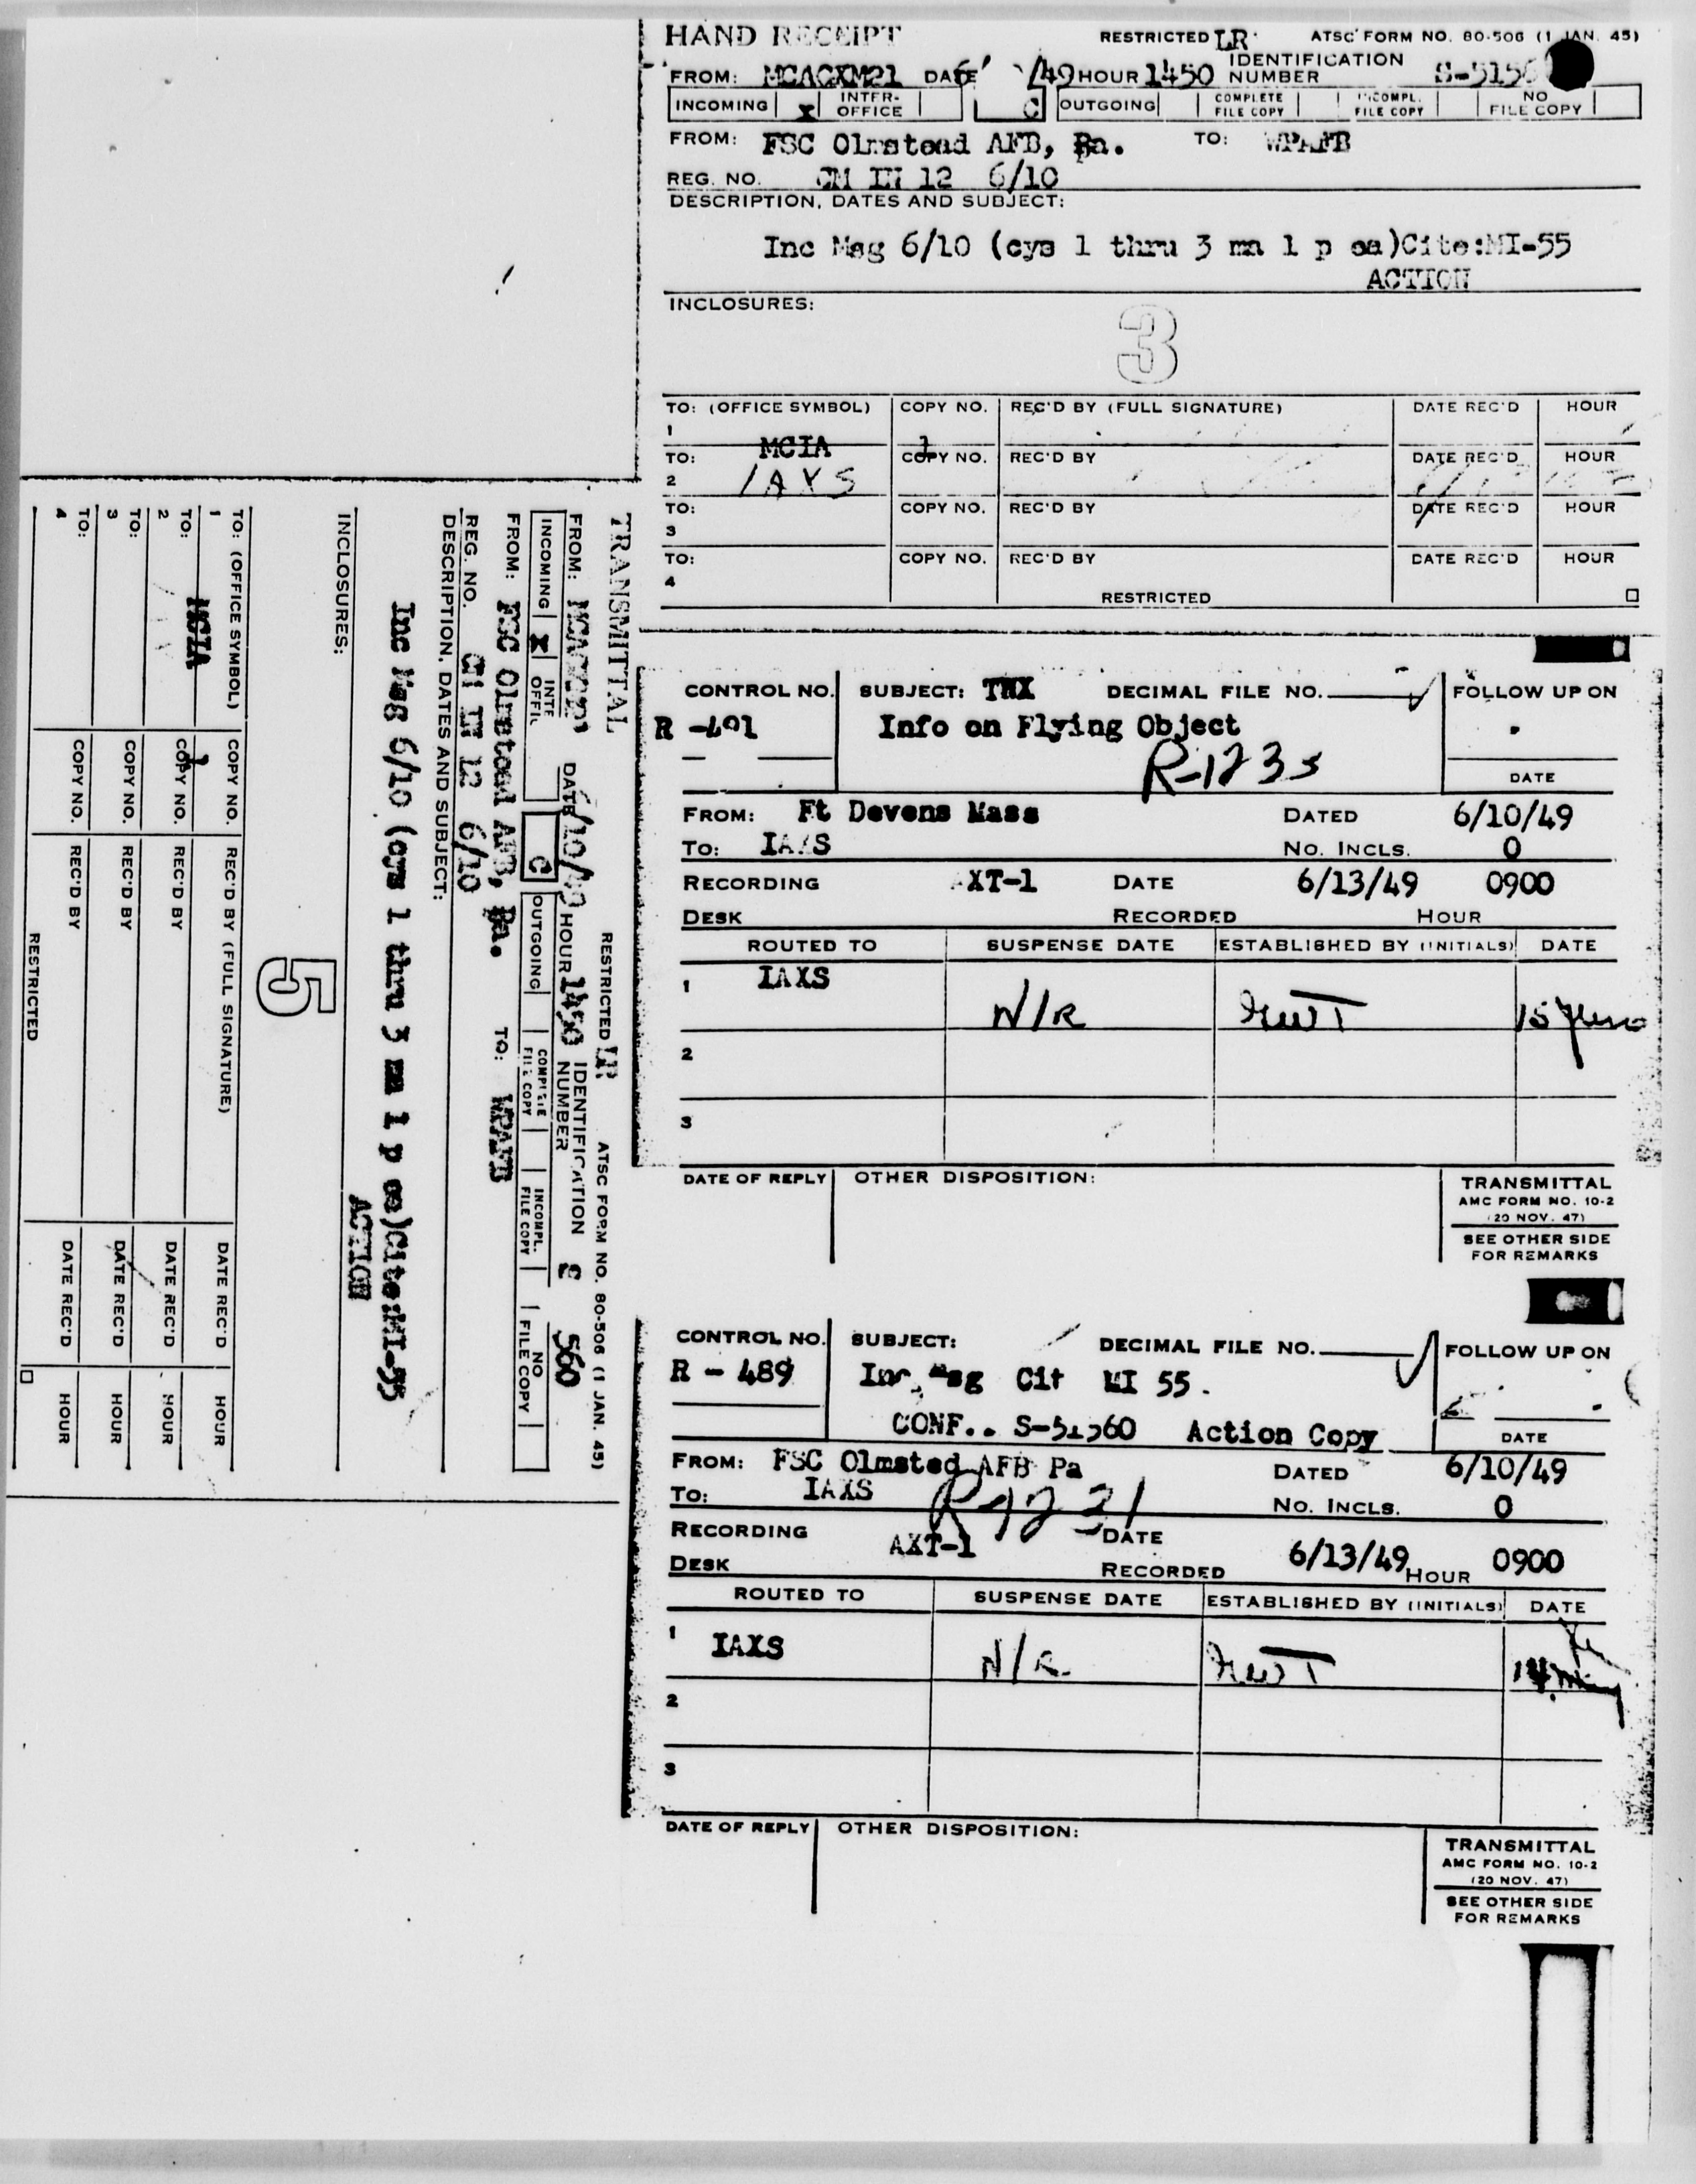 HAND RECEIPT RESTRICTED LR ATSC FORM NO. 80-506 (1 JAN. 45)
FROM: MCACXM21 DATE 6/ /49 HOUR 1450 IDENTIFICATION NUMBER S-5156
INCOMING X INTER-OFFICE C OUTGOING COMPLETE FILE COPY INCOMPL. FILE COPY NO FILE COPY
FROM: FSC Olmstead AFB, Pa. TO: WPAFB
REG. NO. CM IN 12 6/10
DESCRIPTION, DATES AND SUBJECT:
Inc Msg 6/10 (cys 1 thru 3 mn 1 p ea)Cite:MI-55
ACTION
INCLOSURES:
3
TO: (OFFICE SYMBOL) COPY NO. REC'D BY (FULL SIGNATURE) DATE REC'D HOUR
1 MCIA 1
TO: COPY NO. REC'D BY DATE REC'D HOUR
2 IAXS
TO: COPY NO. REC'D BY DATE REC'D HOUR
3
TO: COPY NO. REC'D BY DATE REC'D HOUR
4
RESTRICTED
TRANSMITTAL RESTRICTED LR ATSC FORM NO. 80-506 (1 JAN. 45)
FROM: MCACXM21 DATE 6/10/49 HOUR 1450 IDENTIFICATION NUMBER S 560
INCOMING X INTE OFFIC C OUTGOING COMPLETE FILE COPY INCOMPL. FILE COPY NO FILE COPY
FROM: FSC Olmstead AFB, Pa. TO: WPAFB
REG. NO. CM IN 12 6/10
DESCRIPTION, DATES AND SUBJECT:
Inc Msg 6/10 (cys 1 thru 3 mn 1 p ea)Cite:MI-55
ACTION
INCLOSURES:
5
TO: (OFFICE SYMBOL) COPY NO. REC'D BY (FULL SIGNATURE) DATE REC'D HOUR
1 MCIA 1
TO: COPY NO. REC'D BY DATE REC'D HOUR
2
TO: COPY NO. REC'D BY DATE REC'D HOUR
3
TO: COPY NO. REC'D BY DATE REC'D HOUR
4
RESTRICTED
CONTROL NO. SUBJECT: TWX DECIMAL FILE NO. FOLLOW UP ON
R -491 Info on Flying Object
R-1233
DATE
FROM: Ft Devens Mass DATED 6/10/49
TO: IAXS NO. INCLS. 0
RECORDING AXT-1 DATE 6/13/49 0900
DESK RECORDED HOUR
ROUTED TO SUSPENSE DATE ESTABLISHED BY (INITIALS) DATE
1 IAXS N/R 15 June
2
3
DATE OF REPLY OTHER DISPOSITION: TRANSMITTAL
AMC FORM NO. 10-2
(20 NOV. 47)
SEE OTHER SIDE
FOR REMARKS
CONTROL NO. SUBJECT: DECIMAL FILE NO. FOLLOW UP ON
R - 489 Inc Msg Cit MI 55.
CONF.. S-51560 Action Copy DATE
FROM: FSC Olmsted AFB Pa DATED 6/10/49
TO: IAXS R-1231 NO. INCLS. 0
RECORDING AXT-1 DATE
DESK RECORDED 6/13/49 HOUR 0900
ROUTED TO SUSPENSE DATE ESTABLISHED BY (INITIALS) DATE
1 IAXS N/R
2
3
DATE OF REPLY OTHER DISPOSITION: TRANSMITTAL
AMC FORM NO. 10-2
(20 NOV. 47)
SEE OTHER SIDE
FOR REMARKS